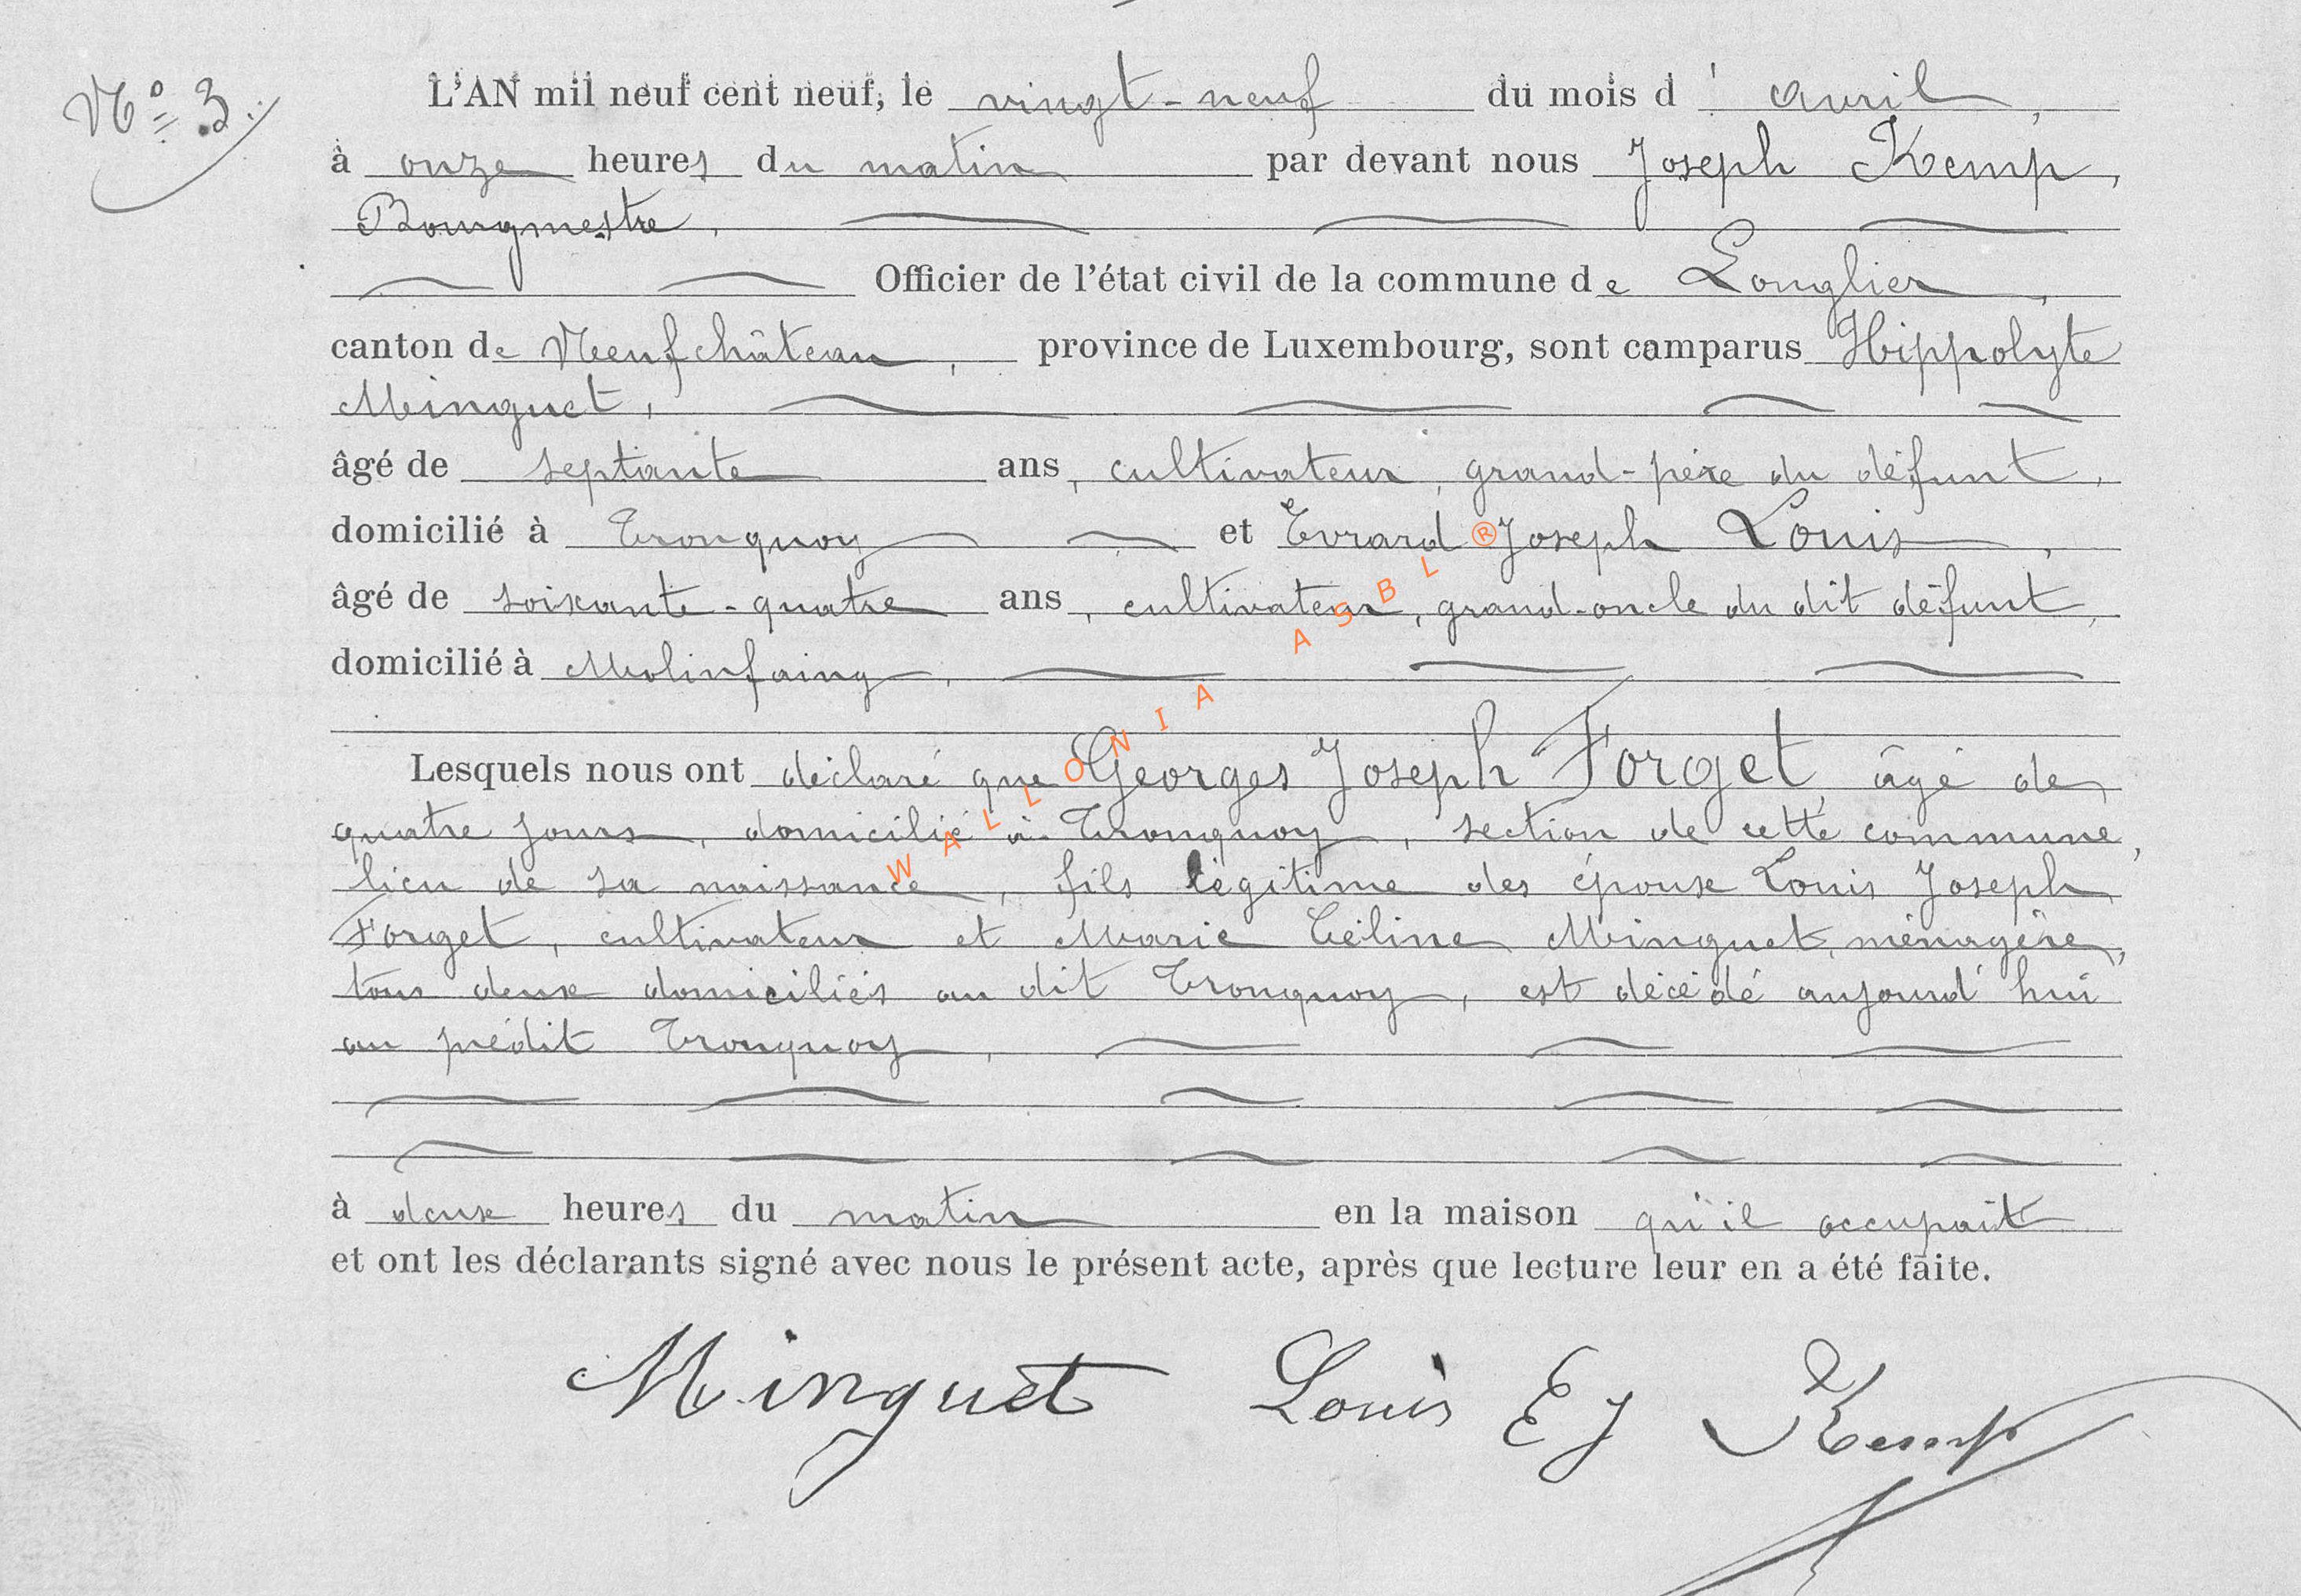 Nº 3.
L'AN mil neuf cent neuf, le vingt-neuf du mois d'avril,
à onze heures du matin par devant nous Joseph Kemp,
Bourgmestre,
Officier de l'état civil de la commune de Longlier,
canton de Neufchâteau, province de Luxembourg, sont camparus Hippolyte
Minguet,
âgé de septante ans, cultivateur, grand-père du défunt,
domicilié à Tronquoy et Evrard Joseph Louis,
âgé de soixante-quatre ans, cultivateur, grand-oncle du dit défunt,
domicilié à Molinfaing,
Lesquels nous ont déclaré que Georges Joseph Forget, âgé de
quatre jours, domicilié à Tronquoy, section de cette commune,
lieu de sa naissance, fils légitime des époux Louis Joseph
Forget, cultivateur et Marie Céline Minguet, ménagère,
tous deux domiciliés au dit Tronquoy, est décédé aujourd'hui
au prédit Tronquoy,
à deux heures du matin en la maison qu'il occupait
et ont les déclarants signé avec nous le présent acte, après que lecture leur en a été faite.
Minguet Louis E J Kemp
WALLONIA ASBL ®